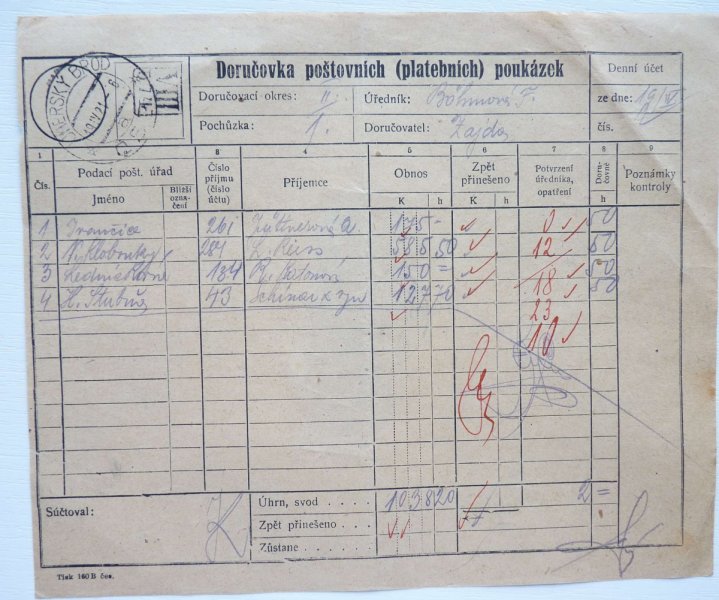 UHERSKÝ BROD
Doručovka poštovních (platebních) poukázek
Denní účet
Doručovací okres: II.
Úředník: Böhmová F.
ze dne: 19/IV
Pochůzka: 1.
Doručovatel: Zajda
čís.
1 3 4 5 6 7 8 9
Čís.
Podací pošt. úřad
Jméno
Bližší ozna- čení
Číslo příjmu (číslo účtu)
Příjemce
Obnos
K h
Zpět přineseno
K h
Potvrzení úředníka, opatření
Doru- čovné
h
Poznámky kontroly
1 Ivančice 261 175 - 50
2 N. Klobouky 284 L. Reiss 585 50 12 50
3 134 150 = 18 50
4 H. Stubňa 43 127 70 50
23
10
Súčtoval:
Úhrn, svod . . . . 1038 20 2 =
Zpět přinešeno . . .
Zůstane . . . .
Tisk 160 B čes.